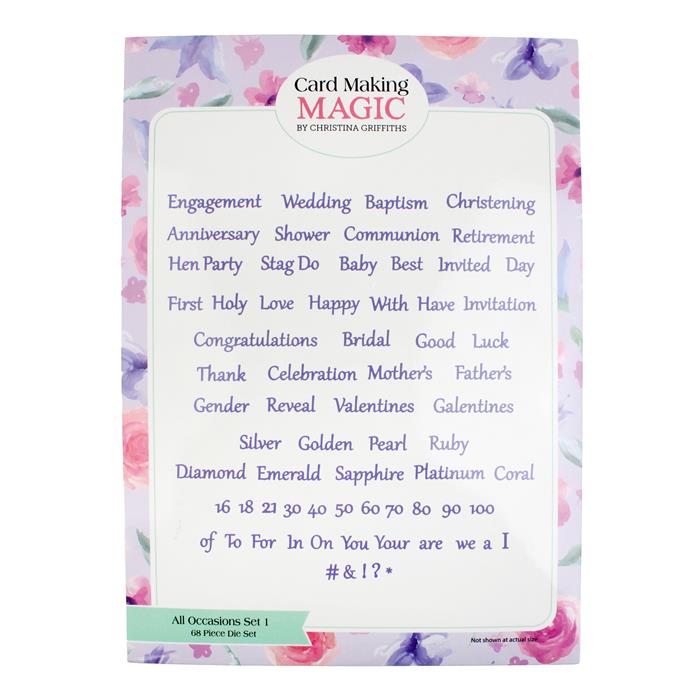 Card Making
MAGIC
BY CHRISTINA GRIFFITHS
Engagement Wedding Baptism Christening
Anniversary Shower Communion Retirement
Hen Party Stag Do Baby Best Invited Day
First Holy Love Happy With Have Invitation
Congratulations Bridal Good Luck
Thank Celebration Mother's Father's
Gender Reveal Valentines Galentines
Silver Golden Pearl Ruby
Diamond Emerald Sapphire Platinum Coral
16 18 21 30 40 50 60 70 80 90 100
of To For In On You Your are we a I
# & ! ? *
All Occasions Set 1
68 Piece Die Set
Not shown at actual size